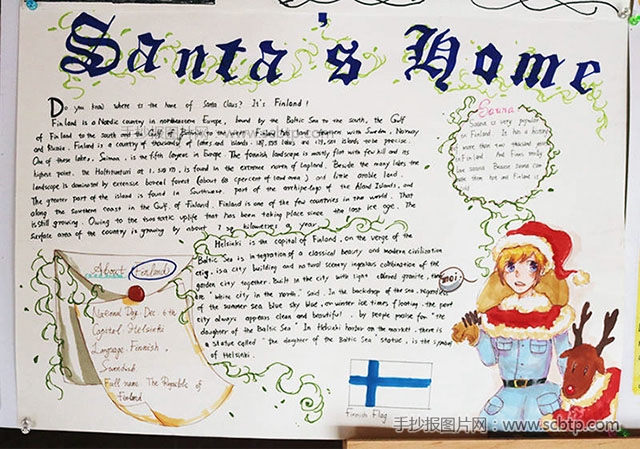 Santa's Home
Do you know where is the home of Santa Claus? It's Finland!
Finland is a Nordic country in northeastern Europe, bound by the Baltic Sea to the south, the Gulf
of Finland to the south and the Gulf of to the west. Finland has land frontiers with Sweden, Norway
and Russia. Finland is a country of thousands of lakes and islands islands to be precise.
One of these lakes, Saimaa, is the fifth largest in Europe. The landscape is mostly flat with few hill and its
highest point, the Haltitunturi at is found in the extreme north of Lapland. Beside the many lakes the
landscape is dominated by extensive boreal forest (about percent of land area) and little arable land.
The greater part of the island is found in Southwest, part of the archipelago of the Aland Islands, and
along the southern coast in the Gulf of Finland. Finland is one of the few countries in the world. That
is still growing. Owing to the isostatic uplift that has been taking place since the last ice age. The
surface area of the country is growing by about kilometres a year.
Helsinki is the capital of Finland, on the verge of the
Baltic Sea, is integration of a classical beauty and modern civilization
city, is a city building and natural scenery ingenious combination of the
garden city together. Built in the city with light colored granite,
"white city in the north," said. In the backdrop of the sea,
of the summer sea blue sky blue, on winter ice times floating, the port
city always appears clean and beautiful. by people praise for "the
daughter of the Baltic Sea". In Helsinki harbor on the market, there is
a statue called "the daughter of the Baltic Sea" statue, is the symbol
of Helsinki.
Sauna
Sauna is very popular
in Finland. It has a history
of more than two thousand years
in Finland. And Finns really
love sauna. Because Sauna can
About Finland
National Day: Dec 6th
Capital: Helsinki
Language: Finnish,
Swedish
Full name: The Republic of
Finland
moi!
Finnish Flag
手抄报图片网
手抄报图片网：www.scbtp.com